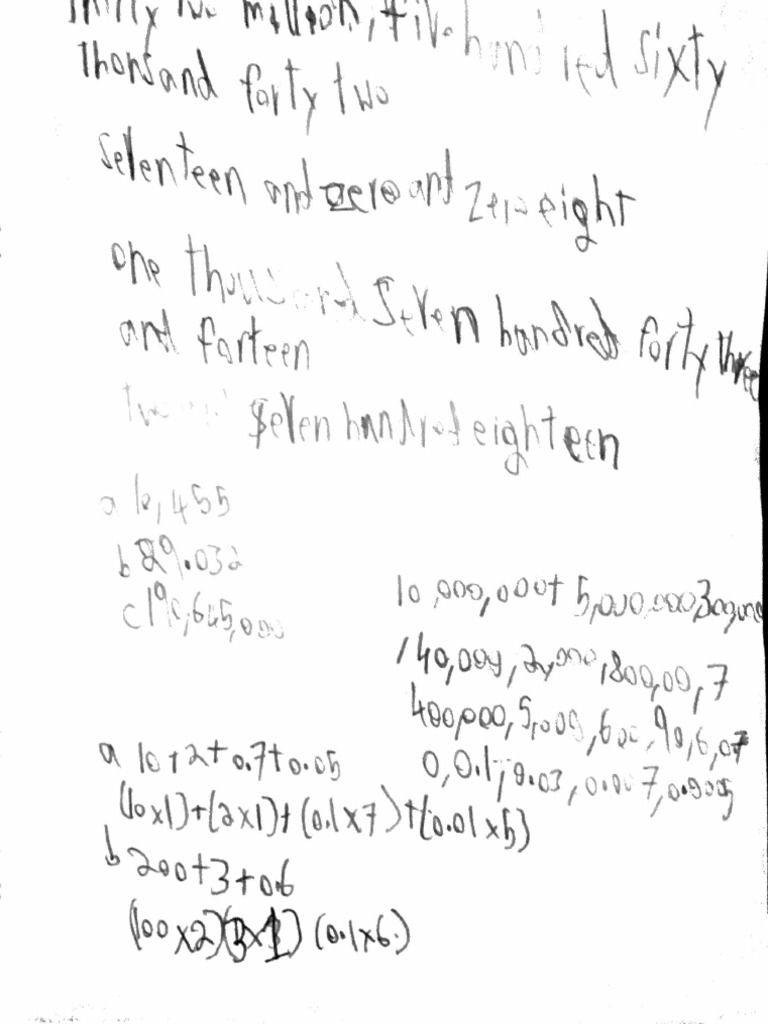 million, five hundred sixty
Thousand forty two
seventeen and zero and zero eight
one thousand seven hundred forty three
and forteen
two seven hundred eighteen
a 10,455
b 29.032
c 190,645,000
10,000,000+ 5,000,000,300,000
140,000, 2,000,800,00, 7
400,000, 5,000, 600, 90, 6, 0.7
0, 0.1, 0.03, 0.007, 0.0005
a 10+2+0.7+0.05
(10x1)+(2x1)+(0.1x7)+(0.01x5)
b 200+3+0.6
(100x2)(3x1)(0.1x6.)